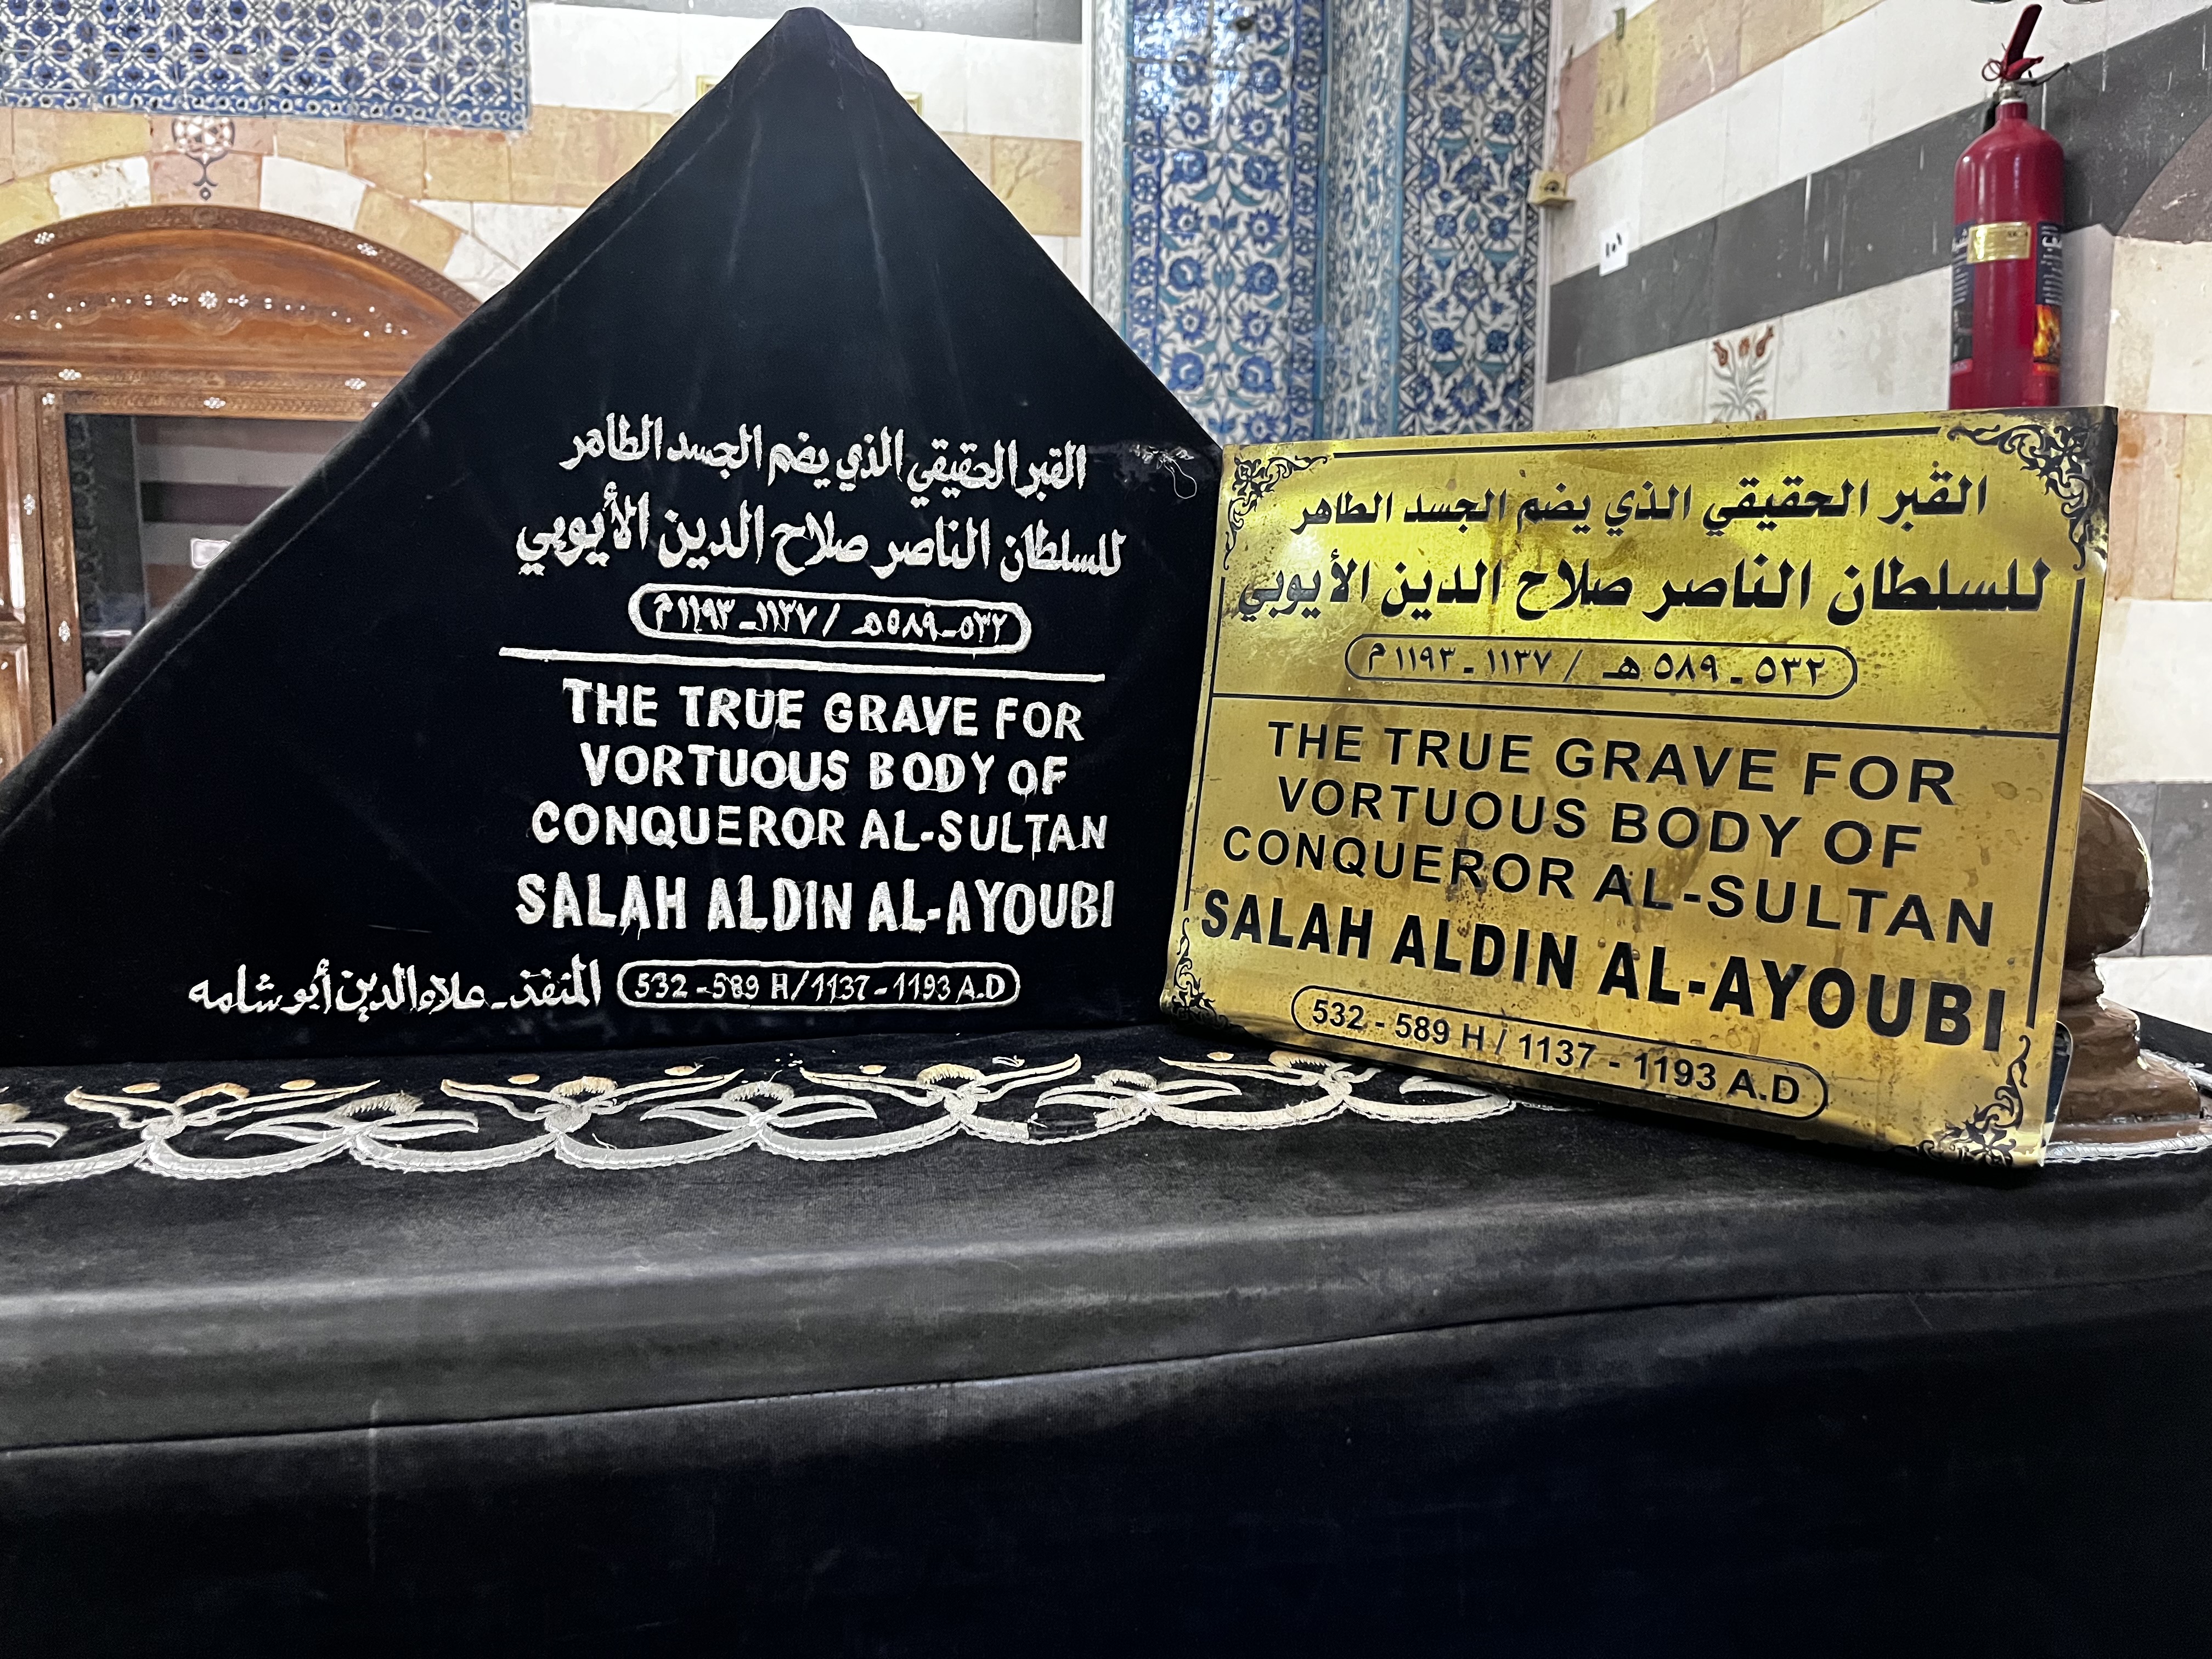 القبر الحقيقي الذي يضم الجسد الطاهر
للسلطان الناصر صلاح الدين الأيوبي
٥٣٢ـ٥٨٩هـ / ١١٣٧ـ١١٩٣م
THE TRUE GRAVE FOR
VORTUOUS BODY OF
CONQUEROR AL-SULTAN
SALAH ALDIN AL-AYOUBI
532-589 H/1137-1193 A.D
المنفذ ـ علاء الدين أبو شامه
القبر الحقيقي الذي يضم الجسد الطاهر
للسلطان الناصر صلاح الدين الأيوبي
٥٣٢ ـ ٥٨٩ هـ / ١١٣٧ ـ ١١٩٣ م
THE TRUE GRAVE FOR
VORTUOUS BODY OF
CONQUEROR AL-SULTAN
SALAH ALDIN AL-AYOUBI
532 - 589 H / 1137 - 1193 A.D
١٠١